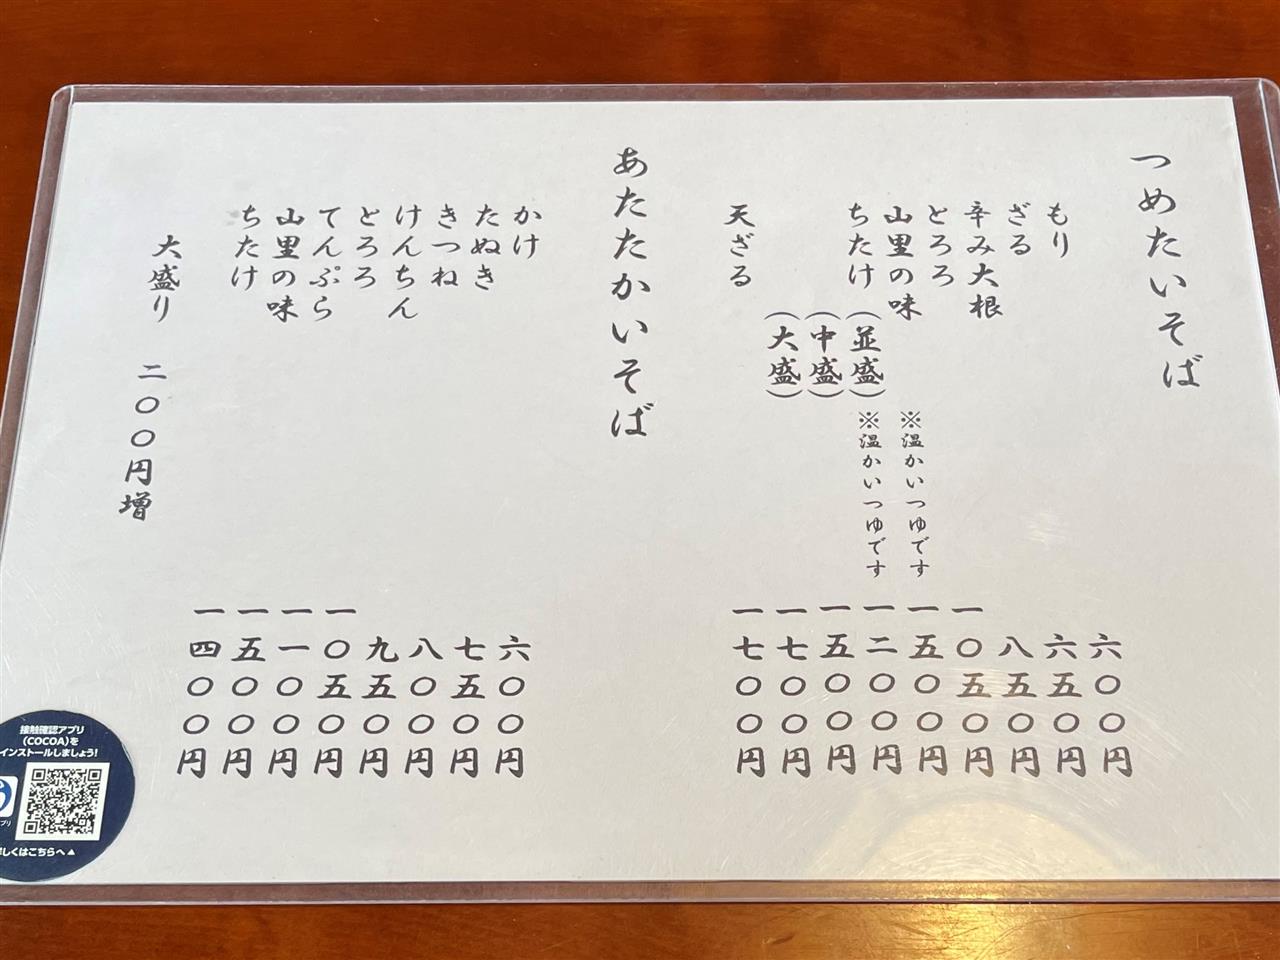 つめたいそば
もり 六〇〇円
ざる 六五〇円
辛み大根 八五〇円
とろろ 一〇五〇円
山里の味 ※温かいつゆです 一五〇〇円
ちたけ(並盛) ※温かいつゆです 一二〇〇円
(中盛) 一五〇〇円
(大盛) 一七〇〇円
天ざる 一七〇〇円
あたたかいそば
かけ 六〇〇円
たぬき 七五〇円
きつね 八〇〇円
けんちん 九五〇円
とろろ 一〇五〇円
てんぷら 一一〇〇円
山里の味 一五〇〇円
ちたけ 一四〇〇円
大盛り 二〇〇円増
接触確認アプリ
(COCOA)を
インストールしましょう!
プリ
しくはこちらへ▲